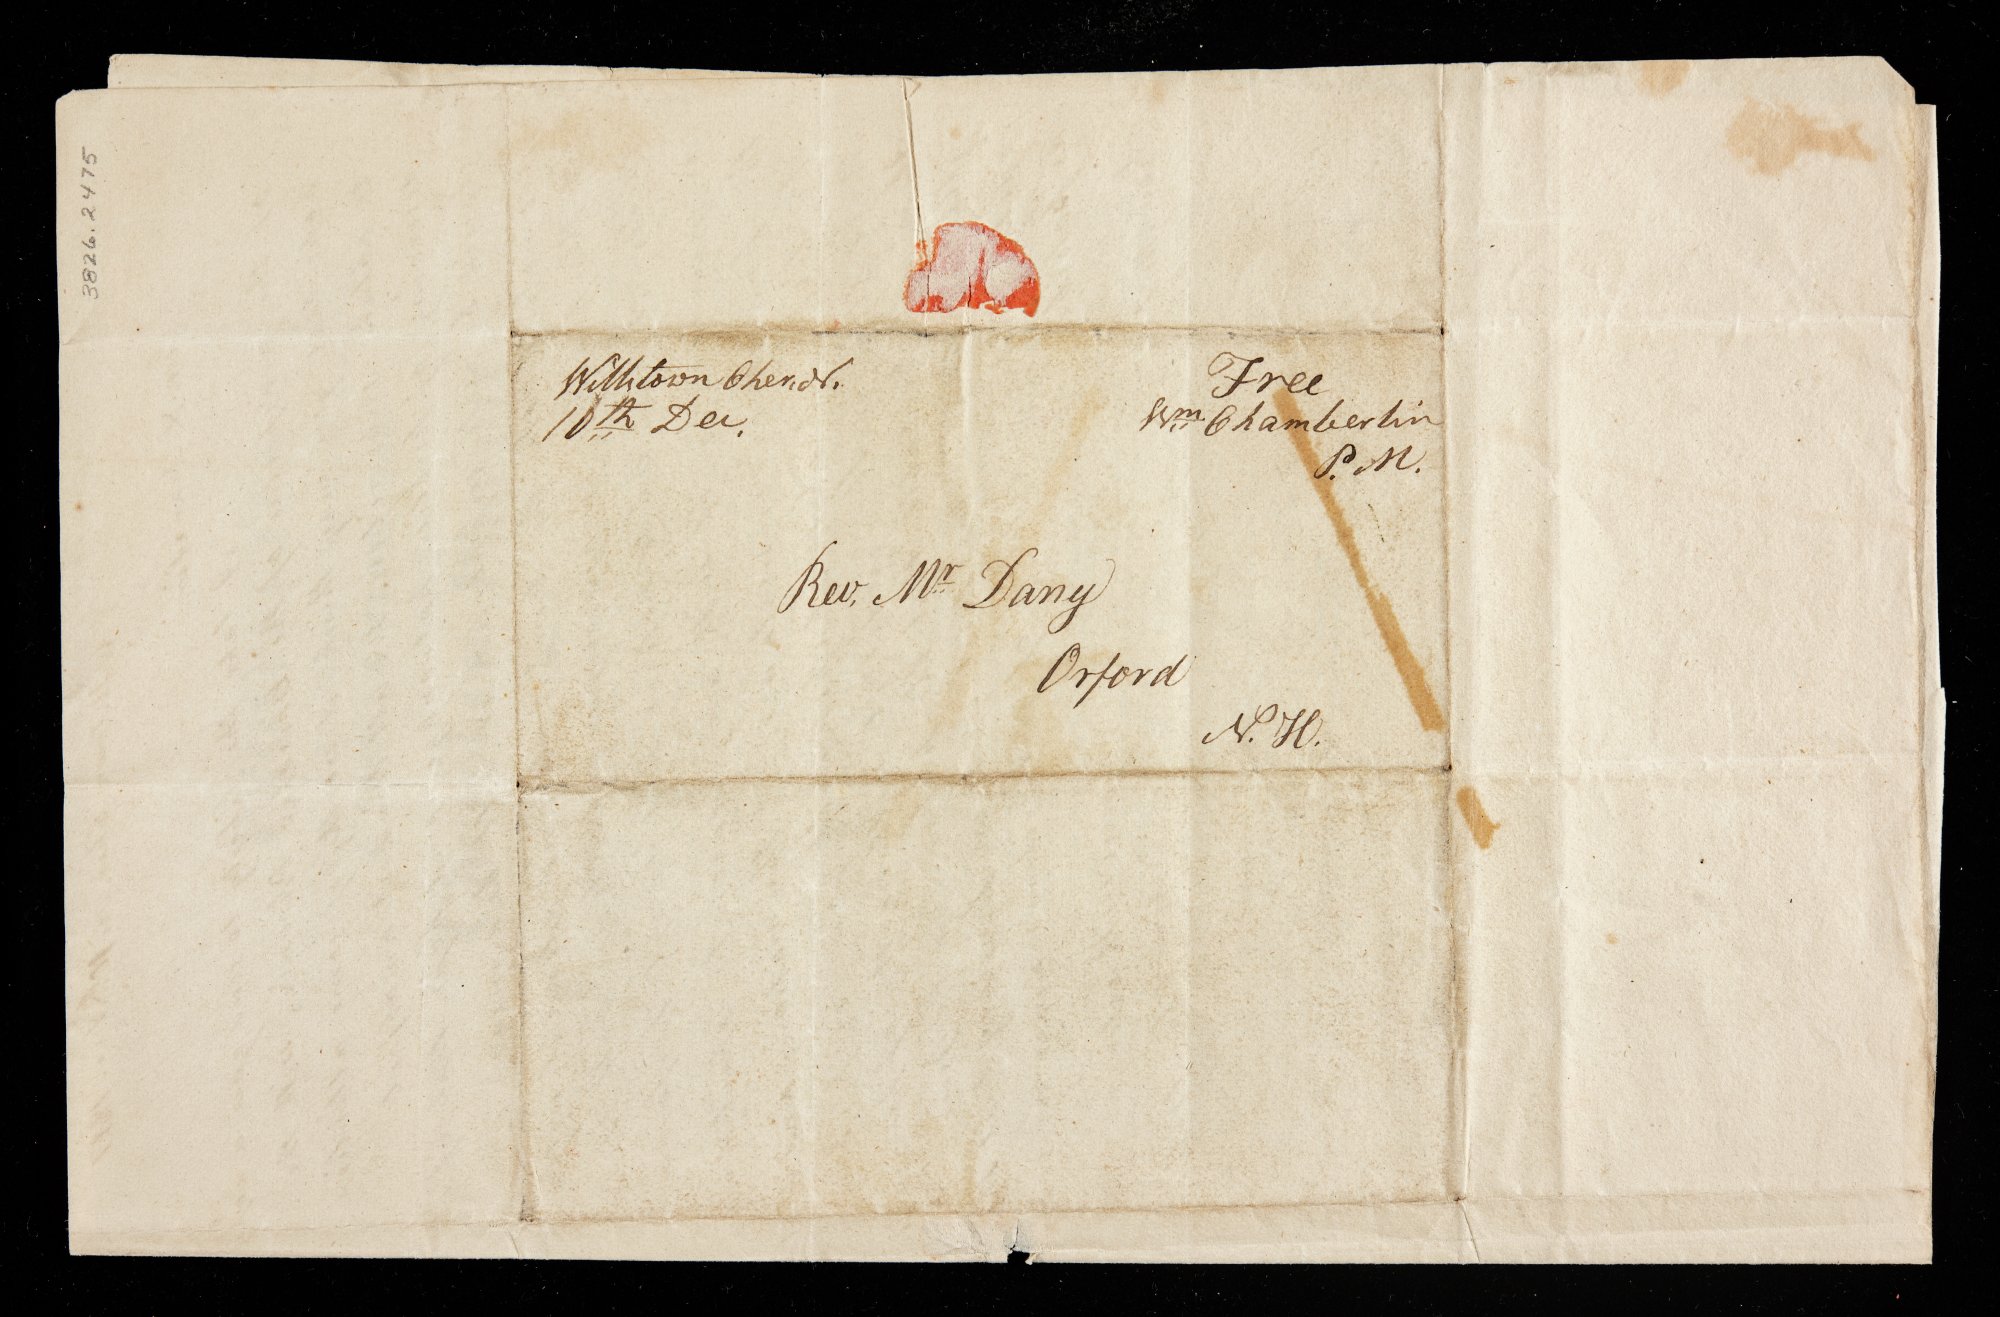 3826.2475
Willstown Cher. N.
10th Dec.
Free
Wm Chamberlin
P. M.
Rev. Mr Dany
Orford
N. H.